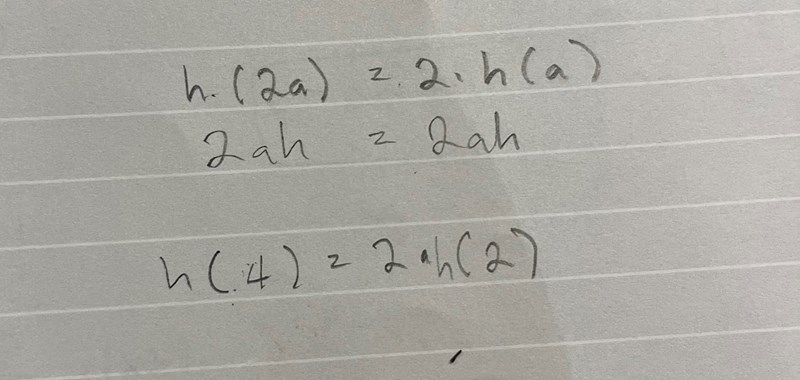 h.(2a) = 2.h(a)
2ah = 2ah
h(.4) = 2ah(2)